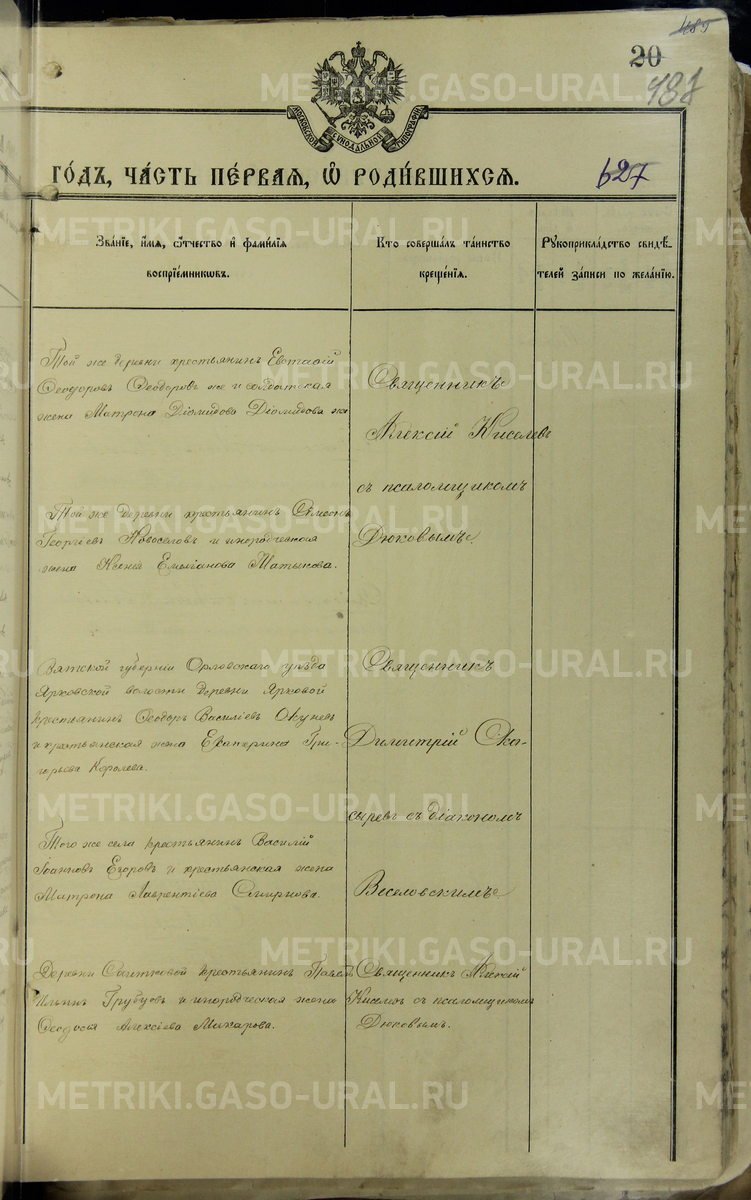 485
20
487
МОСКОВСКОЙ СУНОДАЛЬНОЙ ТИПОГРАФІИ
ГО́ДЪ, ЧА́СТЬ ПЕ́РВАЯ, Ѡ РОДИ́ВШИХСЯ.
627
Зва́ніе, и́мя, ѻ҆́тчество и҆ фами́лія
воспріе́мникѡвъ.
Кто соверша́лъ та́инство
креще́нія.
Рꙋкоприкла́дство свидѣ́-
телей за́писи по жела́нію.
Той же деревни крестьянинъ
Ѳеодоровъ Ѳеодоровъ же и солдатская
жена Матрона Діомидова Діомидова же
Священникъ
Алексій Киселевъ
съ псаломщикомъ
Дюковымъ
Той же деревни крестьянинъ Симеонъ
Георгіевъ Новоселовъ и инородческая
жена Ксенія Емельянова Матыкова.
Вятской губерніи Орловскаго уѣзда
Ярковской волости деревни Ярковой
крестьянинъ Ѳеодоръ Василіевъ Окуневъ
и крестьянская жена Екатерина Гри-
горьева Королева.
Священникъ
Димитрій Ско-
сыревъ съ діакономъ
Веселовскимъ
Того же села крестьянинъ Василій
Іоанновъ Егоровъ и крестьянская жена
Матрона Лаврентіева Смирнова.
Деревни крестьянинъ Павелъ
Ильинъ Трубцовъ и инородческая жена
Ѳеодосія Алексіева Макарова.
Священникъ Алексій
Киселевъ съ псаломщикомъ
Дюковымъ.
METRIKI.GASO-URAL.RU